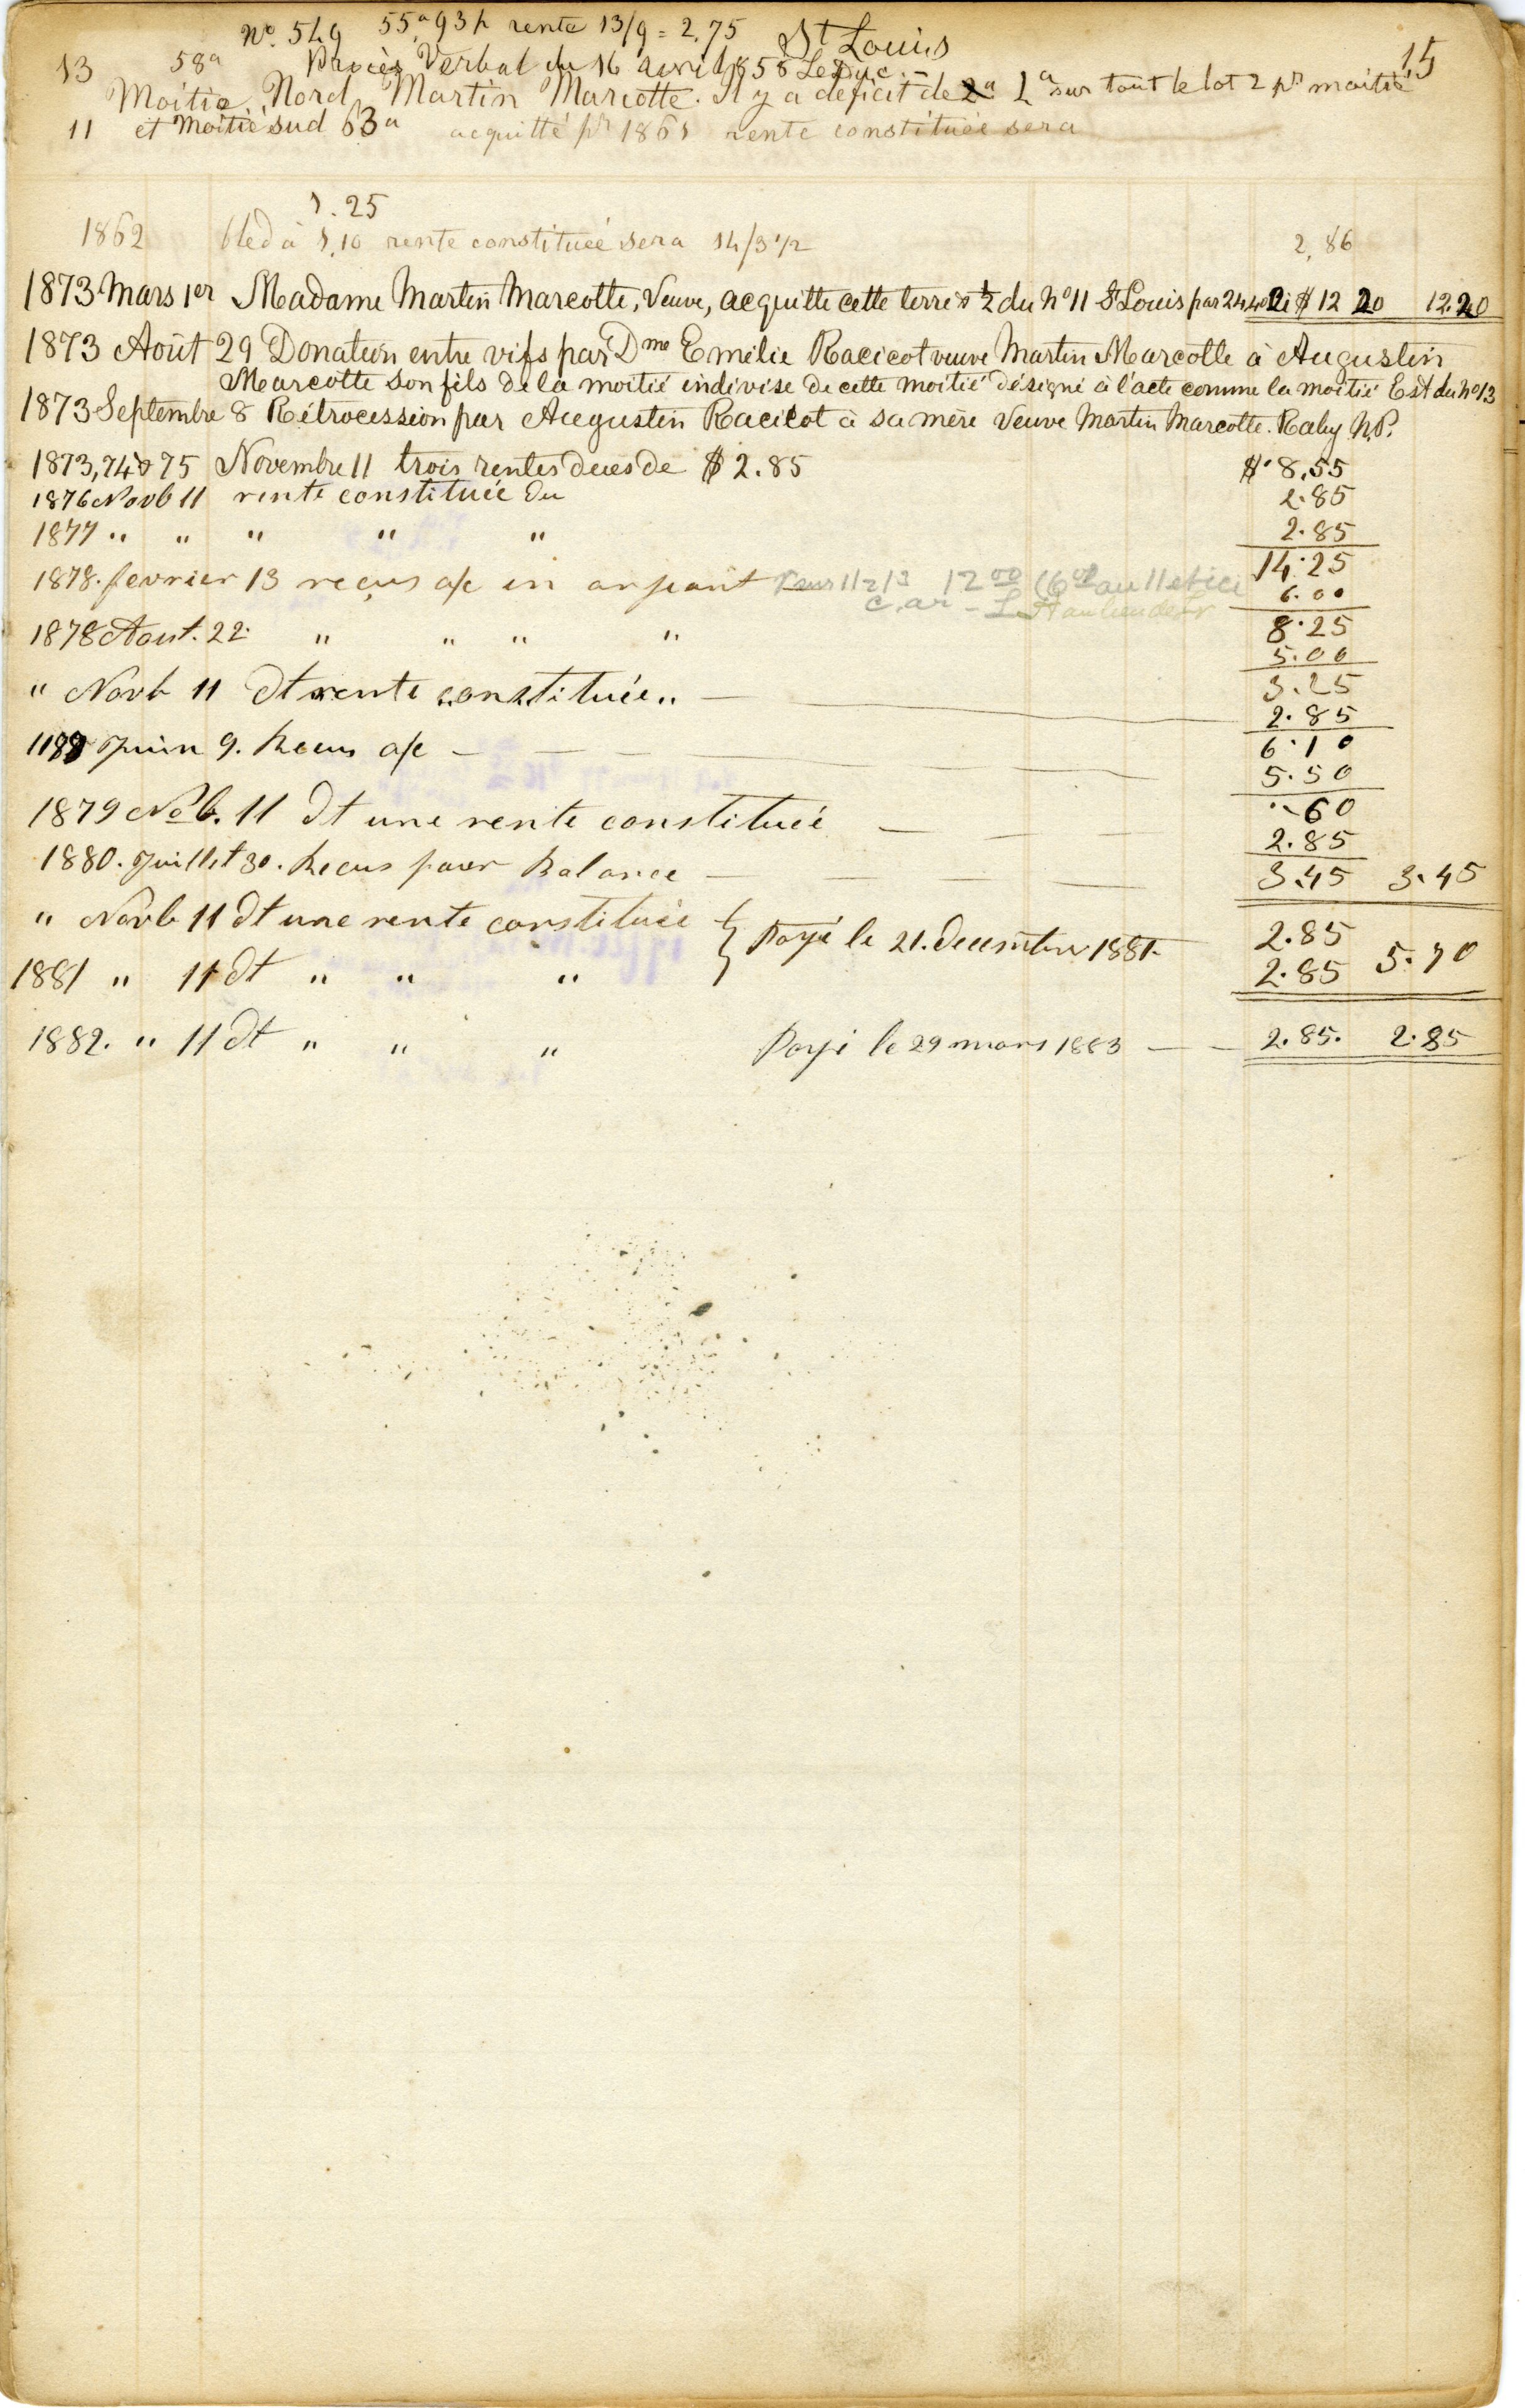 No. 549 55a 93p rente 13/9 = 2,75 St Louis
15
13 58a Procès Verbal du 16 avril 1858 Leduc
Moitié Nord, Martin Marcotte. Il y a déficit de 1a sur tout le lot 2 pr moitié
11 et Moitié sud 63a acquitté pr 1861 rente constituée sera
1.25
1862 bled à 1,10 rente constituée sera 14/3 1/2 2,86
1873 Mars 1er Madame Martin Marcotte, Veuve, acquitte cette terre & 1/2 du No 11 St Louis par $ 12 20 12.20
1873 Août 29 Donation entre vifs par Dme Emélie Racicot veuve Martin Marcotte à Augustin
Marcotte son fils de la moitié indivise de cette moitié désigné à l'acte comme la moitié Est du No 13
1873 Septembre 8 Rétrocession par Augustin Racicot à sa mère Veuve Martin Marcotte. Raby N.P.
1873, 74 & 75 Novembre 11 trois rentes dues de $ 2.85 $ 8,55
1876 Novb 11 rente constituée du 2.85
1877 " " " " " 2.85
14.25
1878. fevrier 13 reçus a/c en argent 12 00 6.00
8.25
1878 Aout. 22 " " " " 5.00
3.25
" Novb 11 dt rente constituée " 2.85
6.10
Juin 9. Recus a/c 5.50
.60
1879 Nob. 11 dt une rente constituée 2.85
1880. Juillet 30. Recus pour Balance 3.45 3.45
" Novb 11 dt une rente constituée } Payé le 21. Decembre 1881. 2.85
1881 " 11 dt " " " 2.85 5.70
1882. " 11 dt " " " Payé le 29 mars 1883 2.85. 2.85